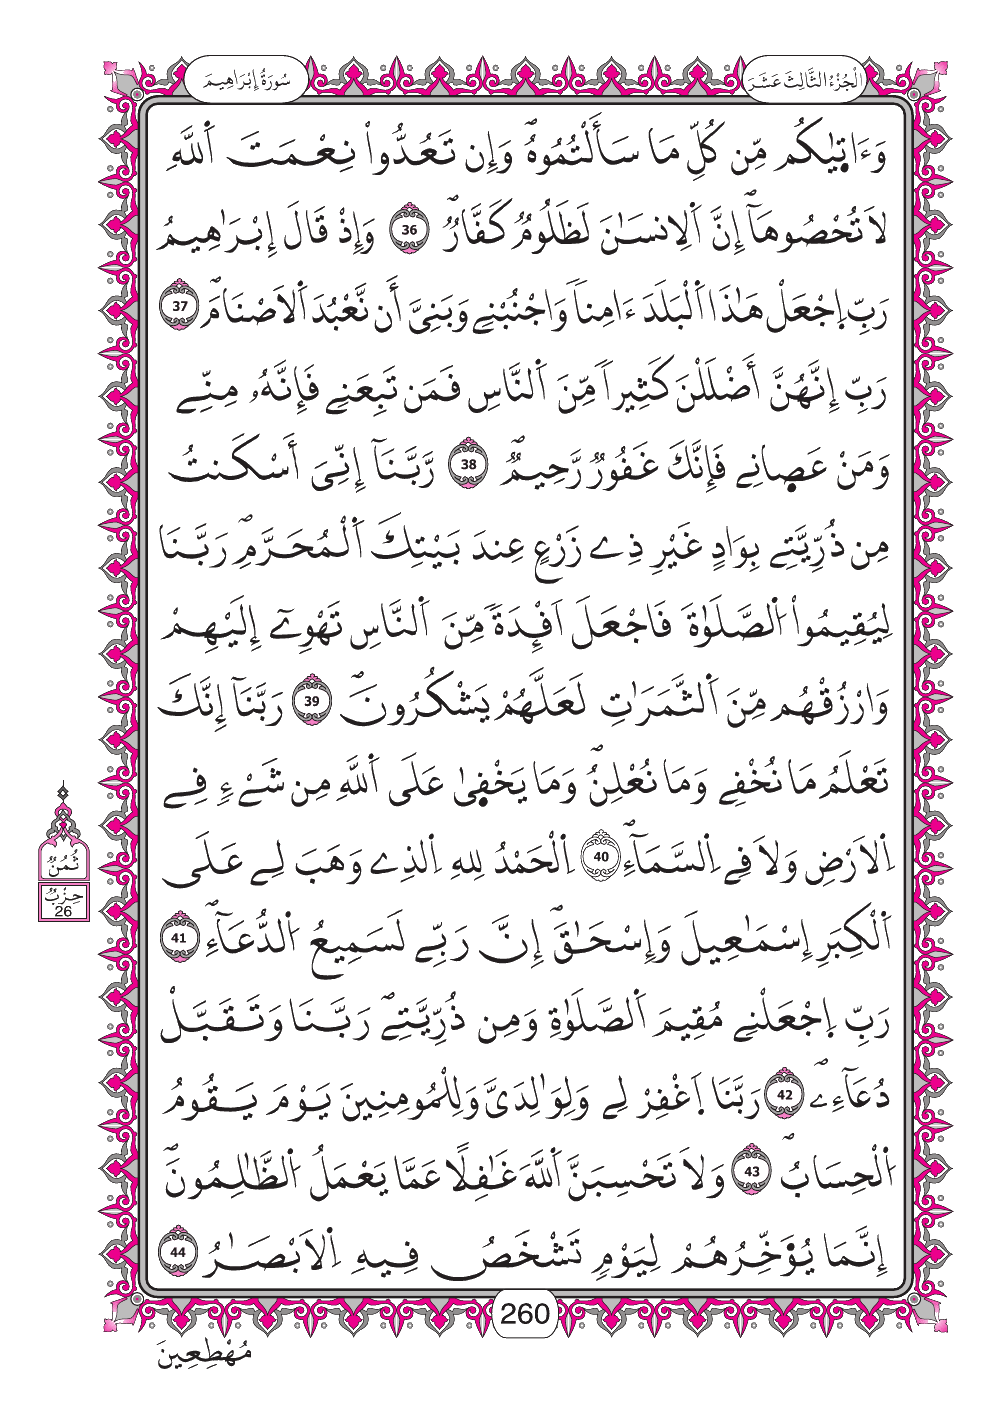 سُورَةُ إِبْرَاهِيمَ
الْجُزْءُ الثَّالِثَ عَشَرَ
وَءَاتٜيٰكُم مِّن كُلِّ مَا سَأَلْتُمُوهُۖ وَإِن تَعُدُّواْ نِعْمَتَ اَ۬للَّهِ
لَا تُحْصُوهَآۖ إِنَّ اَ۬لِانسَٰنَ لَظَلُومٞ كَفَّارٞۖ 36 وَإِذْ قَالَ إِبْرَٰهِيمُ
رَبِّ اِ۪جْعَلْ هَٰذَا اَ۬لْبَلَدَ ءَامِناٗ وَاجْنُبْنِے وَبَنِيَّ أَن نَّعْبُدَ اَ۬لَاصْنَامَۖ 37
رَبِّ إِنَّهُنَّ أَضْلَلْنَ كَثِيراٗ مِّنَ اَ۬لنَّاسِ فَمَن تَبِعَنِے فَإِنَّهُۥ مِنِّے
وَمَنْ عَصٜانِے فَإِنَّكَ غَفُورٞ رَّحِيمٞۖ 38 رَّبَّنَآ إِنِّيَ أَسْكَنتُ
مِن ذُرِّيَّتِے بِوَادٍ غَيْرِ ذِے زَرْعٍ عِندَ بَيْتِكَ اَ۬لْمُحَرَّمِۖ رَبَّنَا
لِيُقِيمُواْ اُ۬لصَّلَوٰةَ فَاجْعَلَ اَفْـِٕدَةٗ مِّنَ اَ۬لنَّاسِ تَهْوِےٓ إِلَيْهِمْ
وَارْزُقْهُم مِّنَ اَ۬لثَّمَرَٰتِ لَعَلَّهُمْ يَشْكُرُونَۖ 39 رَبَّنَآ إِنَّكَ
تَعْلَمُ مَا نُخْفِے وَمَا نُعْلِنُۖ وَمَا يَخْفٜيٰ عَلَى اَ۬للَّهِ مِن شَےْءٖ فِے
اِ۬لَارْضِ وَلَا فِے اِ۬لسَّمَآءِۖ 40 اِ۬لْحَمْدُ لِلهِ اِ۬لذِے وَهَبَ لِے عَلَى
اَ۬لْكِبَرِ إِسْمَٰعِيلَ وَإِسْحَٰقَۖ إِنَّ رَبِّے لَسَمِيعُ اُ۬لدُّعَآءِۖ 41
رَبِّ اِ۪جْعَلْنِے مُقِيمَ اَ۬لصَّلَوٰةِ وَمِن ذُرِّيَّتِےۖ رَبَّنَا وَتَقَبَّلْ
دُعَآءِےۖ 42 رَبَّنَا اَ۪غْفِرْ لِے وَلِوَٰلِدَيَّ وَلِلْمُومِنِينَ يَوْمَ يَقُومُ
اُ۬لْحِسَابُۖ 43 وَلَا تَحْسِبَنَّ اَ۬للَّهَ غَٰفِلًا عَمَّا يَعْمَلُ اُ۬لظَّٰلِمُونَۖ
إِنَّمَا يُؤَخِّرُهُمْ لِيَوْمٖ تَشْخَصُ فِيهِ اِ۬لَابْصَٰرُ 44
ثُمُنٌ
حِزْبٌ
26
260
مُهْطِعِينَ